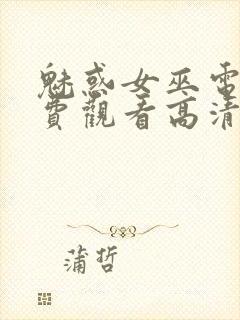 魅惑女巫電
費觀看高清
蒲哲